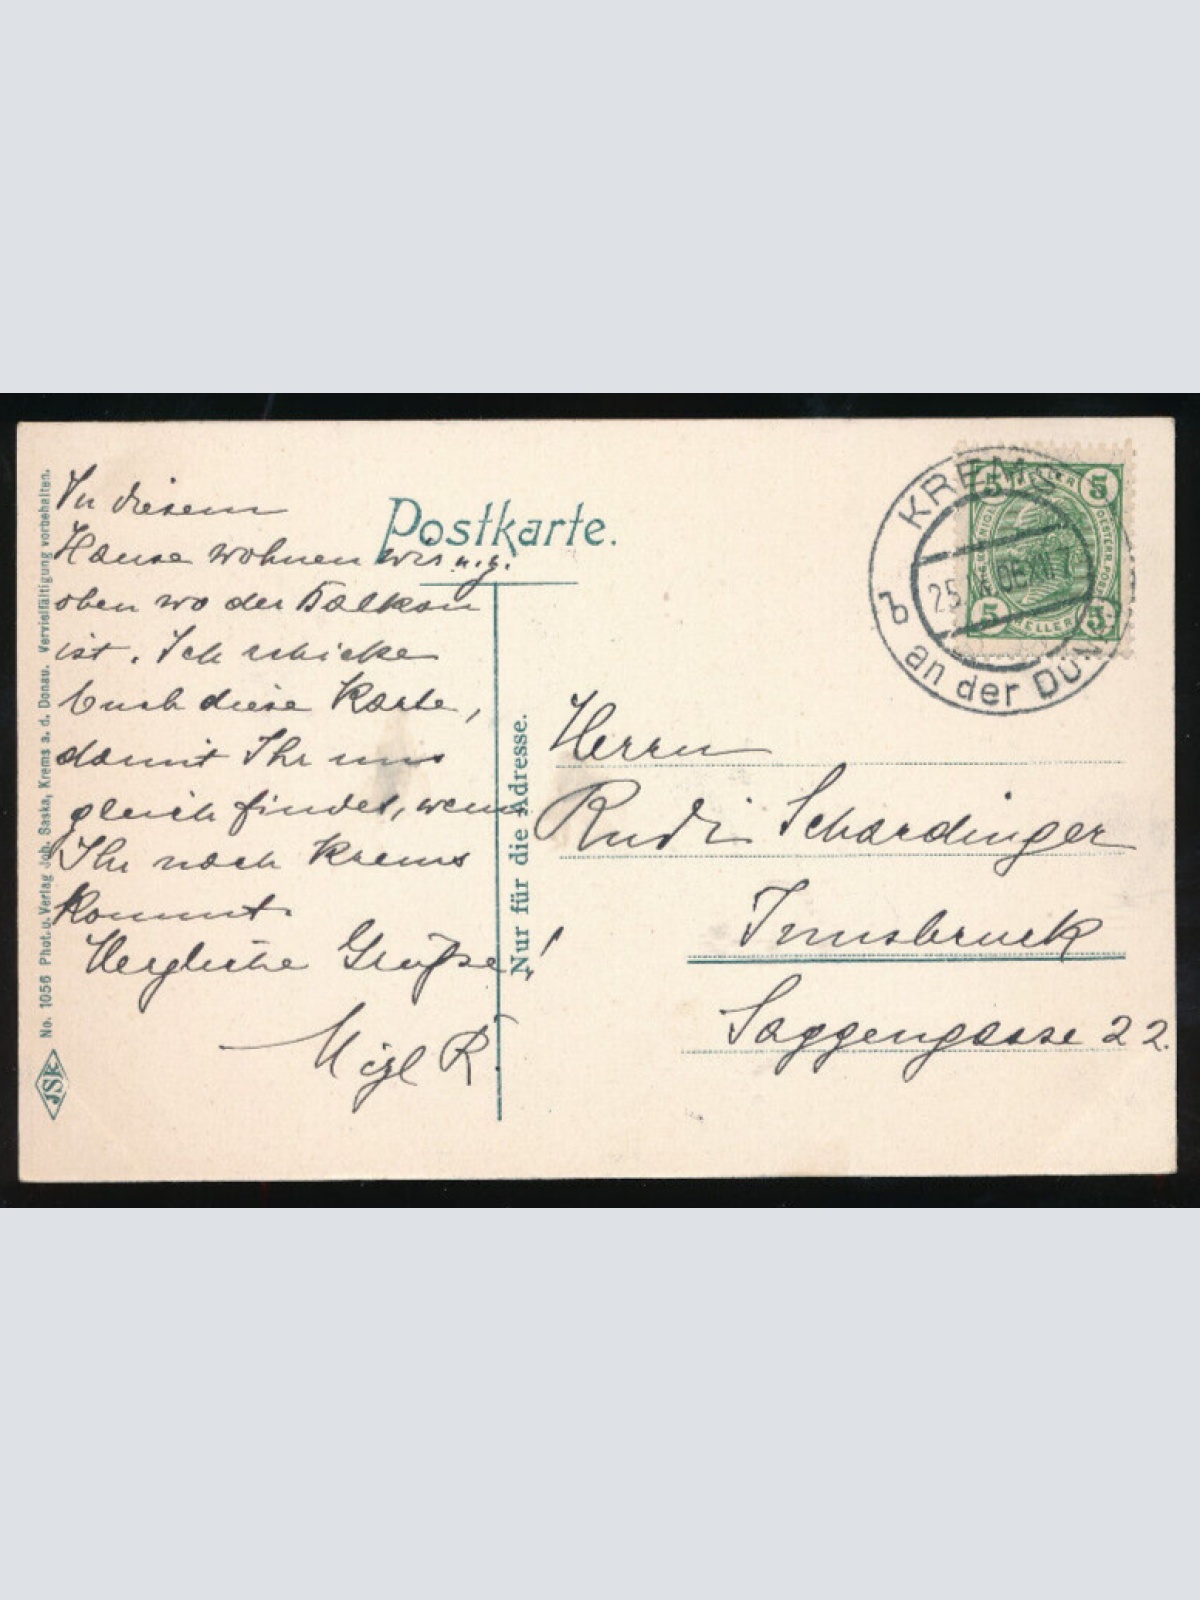 In diesem
Hause wohnen wir u. z.
oben wo der Balkon
ist. Ich schicke
Euch diese Karte,
damit Ihr uns
gleich findet, wenn
Ihr nach Krems
kommt.
Herzliche Grüße!
R.
Postkarte.
Nur für die Adresse.
No. 1056 Phot. u. Verlag Joh. Saska, Krems a. d. Donau. Vervielfältigung vorbehalten.
JSK
KREMS
25. 06 XII 7
b
an der DONAU
5 HELLER 5
5 HELLER 5
Herrn
Rudi Schardinger
Innsbruck
Saggengasse 22.